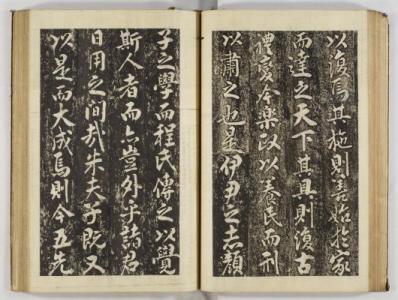 以復焉其施則善始於家
而達之天下其具則復古
禮變今樂政以養民而刑
以肅之也是伊尹之志顏
子之學而程氏傳之以覺
斯人者而亦豈外乎諸君
日用之間哉朱夫子既又
以是而大成焉則今五先